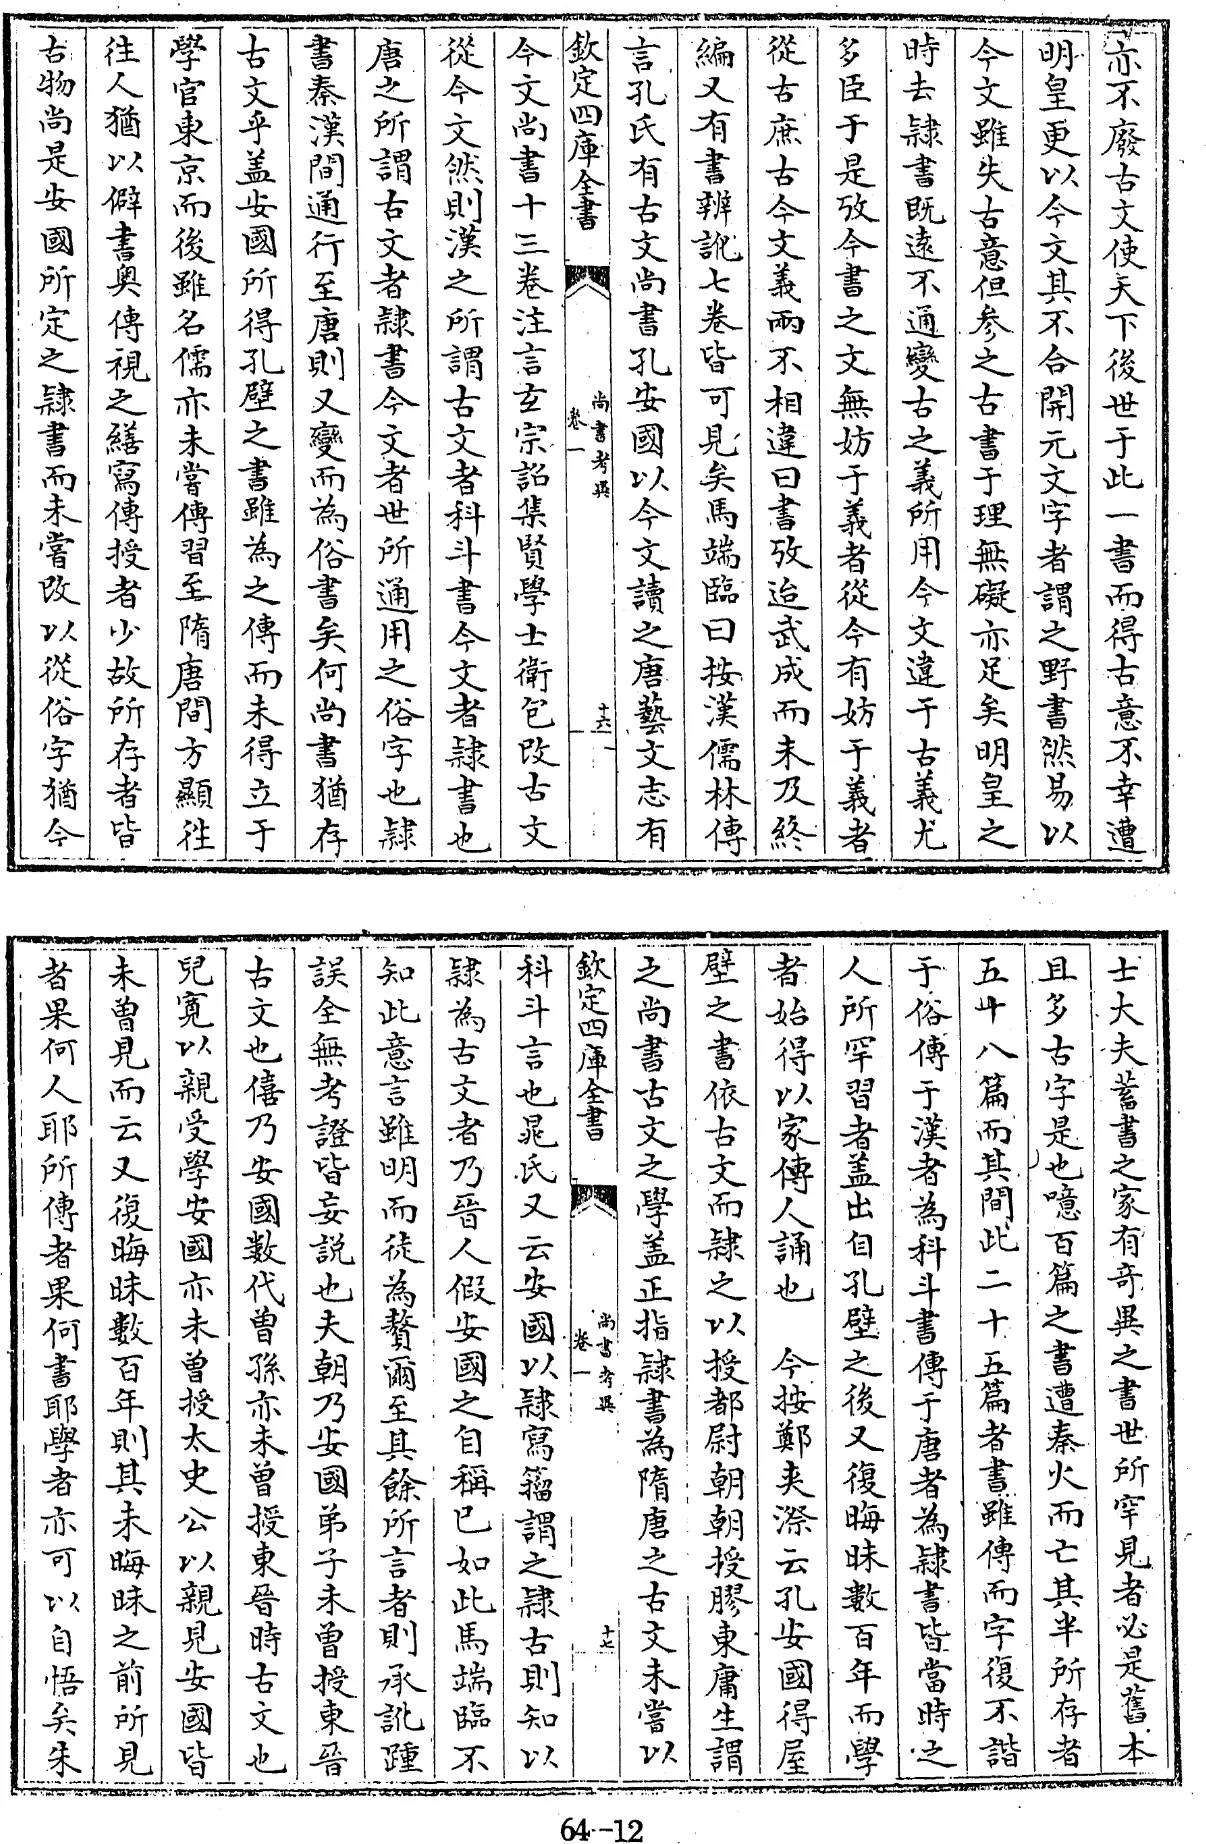 亦不廢古文使天下後世于此一書而得古意不幸遭
明皇更以今文其不合開元文字者謂之野書然易以
今文雖失古意但參之古書于理無礙亦足矣明皇之
時去隸書既遠不通變古之義所用今文違于古義尤
多臣于是攷今書之文無妨于義者從今有妨于義者
從古庶古今文義兩不相違曰書攷迨武成而未及終
編又有書辨訛七卷皆可見矣馬端臨曰按漢儒林傳
言孔氏有古文尚書孔安國以今文讀之唐藝文志有
欽定四庫全書
尚書考異
卷一
十六
今文尚書十三卷注言玄宗詔集賢學士衛包改古文
從今文然則漢之所謂古文者科斗書今文者隸書也
唐之所謂古文者隸書今文者世所通用之俗字也隸
書秦漢間通行至唐則又變而為俗書矣何尚書猶存
古文乎蓋安國所得孔壁之書雖為之傳而未得立于
學官東京而後雖名儒亦未嘗傳習至隋唐間方顯往
往人猶以僻書奧傳視之繕寫傳授者少故所存者皆
古物尚是安國所定之隸書而未嘗改以從俗字猶今
士大夫蓄書之家有奇異之書世所罕見者必是舊本
且多古字是也噫百篇之書遭秦火而亡其半所存者
五十八篇而其間此二十五篇者書雖傳而字復不諧
于俗傳于漢者為科斗書傳于唐者為隸書皆當時之
人所罕習者蓋出自孔壁之後又復晦昧數百年而學
者始得以家傳人誦也　今按鄭夾漈云孔安國得屋
壁之書依古文而隸之以授都尉朝朝授膠東庸生謂
之尚書古文之學蓋正指隸書為隋唐之古文未嘗以
欽定四庫全書
尚書考異
卷一
十七
科斗言也晁氏又云安國以隸寫籀謂之隸古則知以
隸為古文者乃晉人假安國之自稱已如此馬端臨不
知此意言雖明而徒為贅爾至其餘所言者則承訛踵
誤全無考證皆妄說也夫朝乃安國弟子未曾授東晉
古文也僖乃安國數代曾孫亦未曾授東晉時古文也
兒寬以親受學安國亦未曾授太史公以親見安國皆
未曾見而云又復晦昧數百年則其未晦昧之前所見
者果何人耶所傳者果何書耶學者亦可以自悟矣朱
64--12